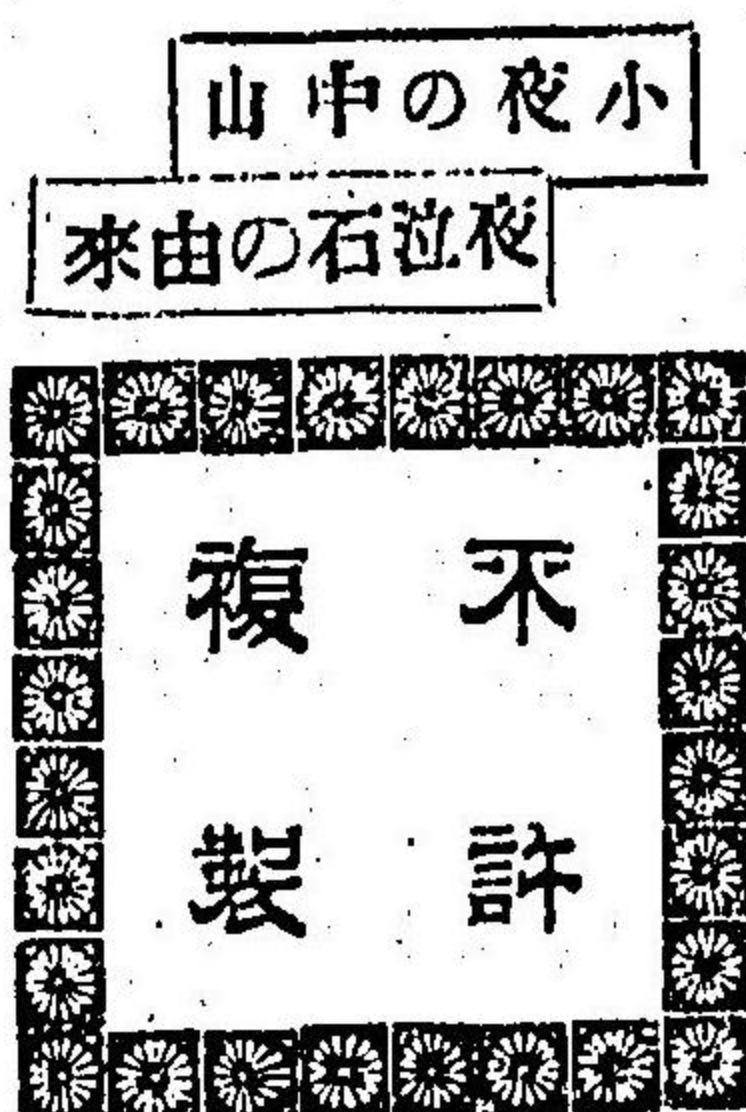 小夜の中山
夜泣石の由来
不許
複製